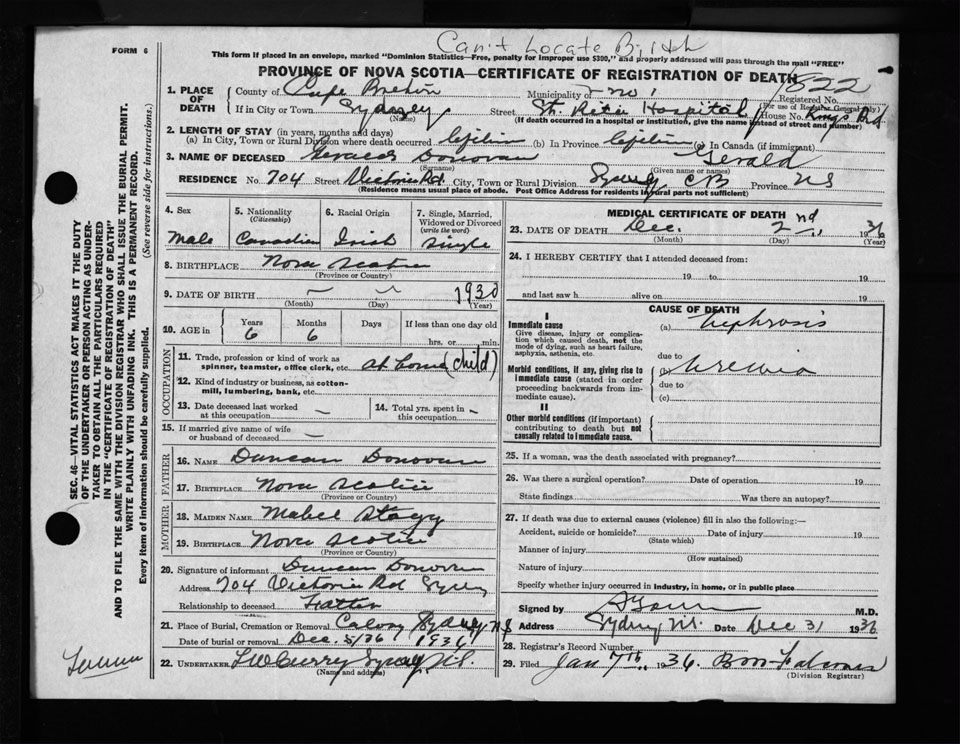 Can't Locate Birth
FORM 6
This form if placed in an envelope, marked "Dominion Statistics—Free, penalty for improper use $300," and properly addressed will pass through the mail "FREE"
PROVINCE OF NOVA SCOTIA—CERTIFICATE OF REGISTRATION OF DEATH
1822
1. PLACE OF DEATH
County of Cape Breton Municipality no 1 Registered No.
(For use of Registrar General only)
If in City or Town Sydney Street St. Rita Hospital House No. Kings Rd
(Name) (If death occurred in a hospital or institution, give the name instead of street and number)
2. LENGTH OF STAY (in years, months and days)
(a) In City, Town or Rural Division where death occurred lifetime (b) In Province lifetime (c) In Canada (if immigrant)
3. NAME OF DECEASED Donovan Gerald
(Surname) (Given name or names)
RESIDENCE No. 704 Street Victoria Rd City, Town or Rural Division Sydney CB Province NS
(Residence means usual place of abode. Post Office Address for residents in rural parts not sufficient)
4. Sex
Male
5. Nationality
(Citizenship)
Canadian
6. Racial Origin
Irish
7. Single, Married, Widowed or Divorced
(write the word)
Single
8. BIRTHPLACE Nova Scotia
(Province or Country)
9. DATE OF BIRTH — — 1930
(Month) (Day) (Year)
10. AGE in
Years Months Days If less than one day old
6 6 hrs. or min.
OCCUPATION
11. Trade, profession or kind of work as spinner, teamster, office clerk, etc. at home (child)
12. Kind of industry or business, as cotton-mill, lumbering, bank, etc.
13. Date deceased last worked at this occupation —
14. Total yrs. spent in this occupation —
15. If married give name of wife or husband of deceased —
FATHER
16. NAME Duncan Donovan
17. BIRTHPLACE Nova Scotia
(Province or Country)
MOTHER
18. MAIDEN NAME Mabel Stagg
19. BIRTHPLACE Nova Scotia
(Province or Country)
20. Signature of informant Duncan Donovan
Address 704 Victoria Rd Sydney
Relationship to deceased Father
21. Place of Burial, Cremation or Removal Calvary Sydney NS
Date of burial or removal Dec. 5/36 1936
22. UNDERTAKER Curry Sydney N.S.
(Name and address)
MEDICAL CERTIFICATE OF DEATH
23. DATE OF DEATH Dec. 2nd 1936
(Month) (Day) (Year)
24. I HEREBY CERTIFY that I attended deceased from:
19 to 19
and last saw h alive on 19
CAUSE OF DEATH
I
Immediate cause
Give disease, injury or complication which caused death, not the mode of dying, such as heart failure, asphyxia, asthenia, etc.
(a) Nephrosis
due to
Morbid conditions, if any, giving rise to immediate cause (stated in order proceeding backwards from immediate cause).
(b) Uremia
due to
(c)
II
Other morbid conditions (if important) contributing to death but not causally related to immediate cause.
25. If a woman, was the death associated with pregnancy?
26. Was there a surgical operation? Date of operation 19
State findings Was there an autopsy?
27. If death was due to external causes (violence) fill in also the following:—
Accident, suicide or homicide? Date of injury 19
(State which)
Manner of injury
(How sustained)
Nature of injury
Specify whether injury occurred in industry, in home, or in public place
Signed by M.D.
Address Sydney N.S. Date Dec 31 1936
28. Registrar's Record Number
29. Filed Jan 7th 1936
(Division Registrar)
SEC. 46—VITAL STATISTICS ACT MAKES IT THE DUTY OF THE UNDERTAKER OR PERSON ACTING AS UNDERTAKER TO OBTAIN ALL THE PARTICULARS REQUIRED IN THE "CERTIFICATE OF REGISTRATION OF DEATH" AND TO FILE THE SAME WITH THE DIVISION REGISTRAR WHO SHALL ISSUE THE BURIAL PERMIT.
WRITE PLAINLY WITH UNFADING INK. THIS IS A PERMANENT RECORD.
Every item of information should be carefully supplied. (See reverse side for instructions.)